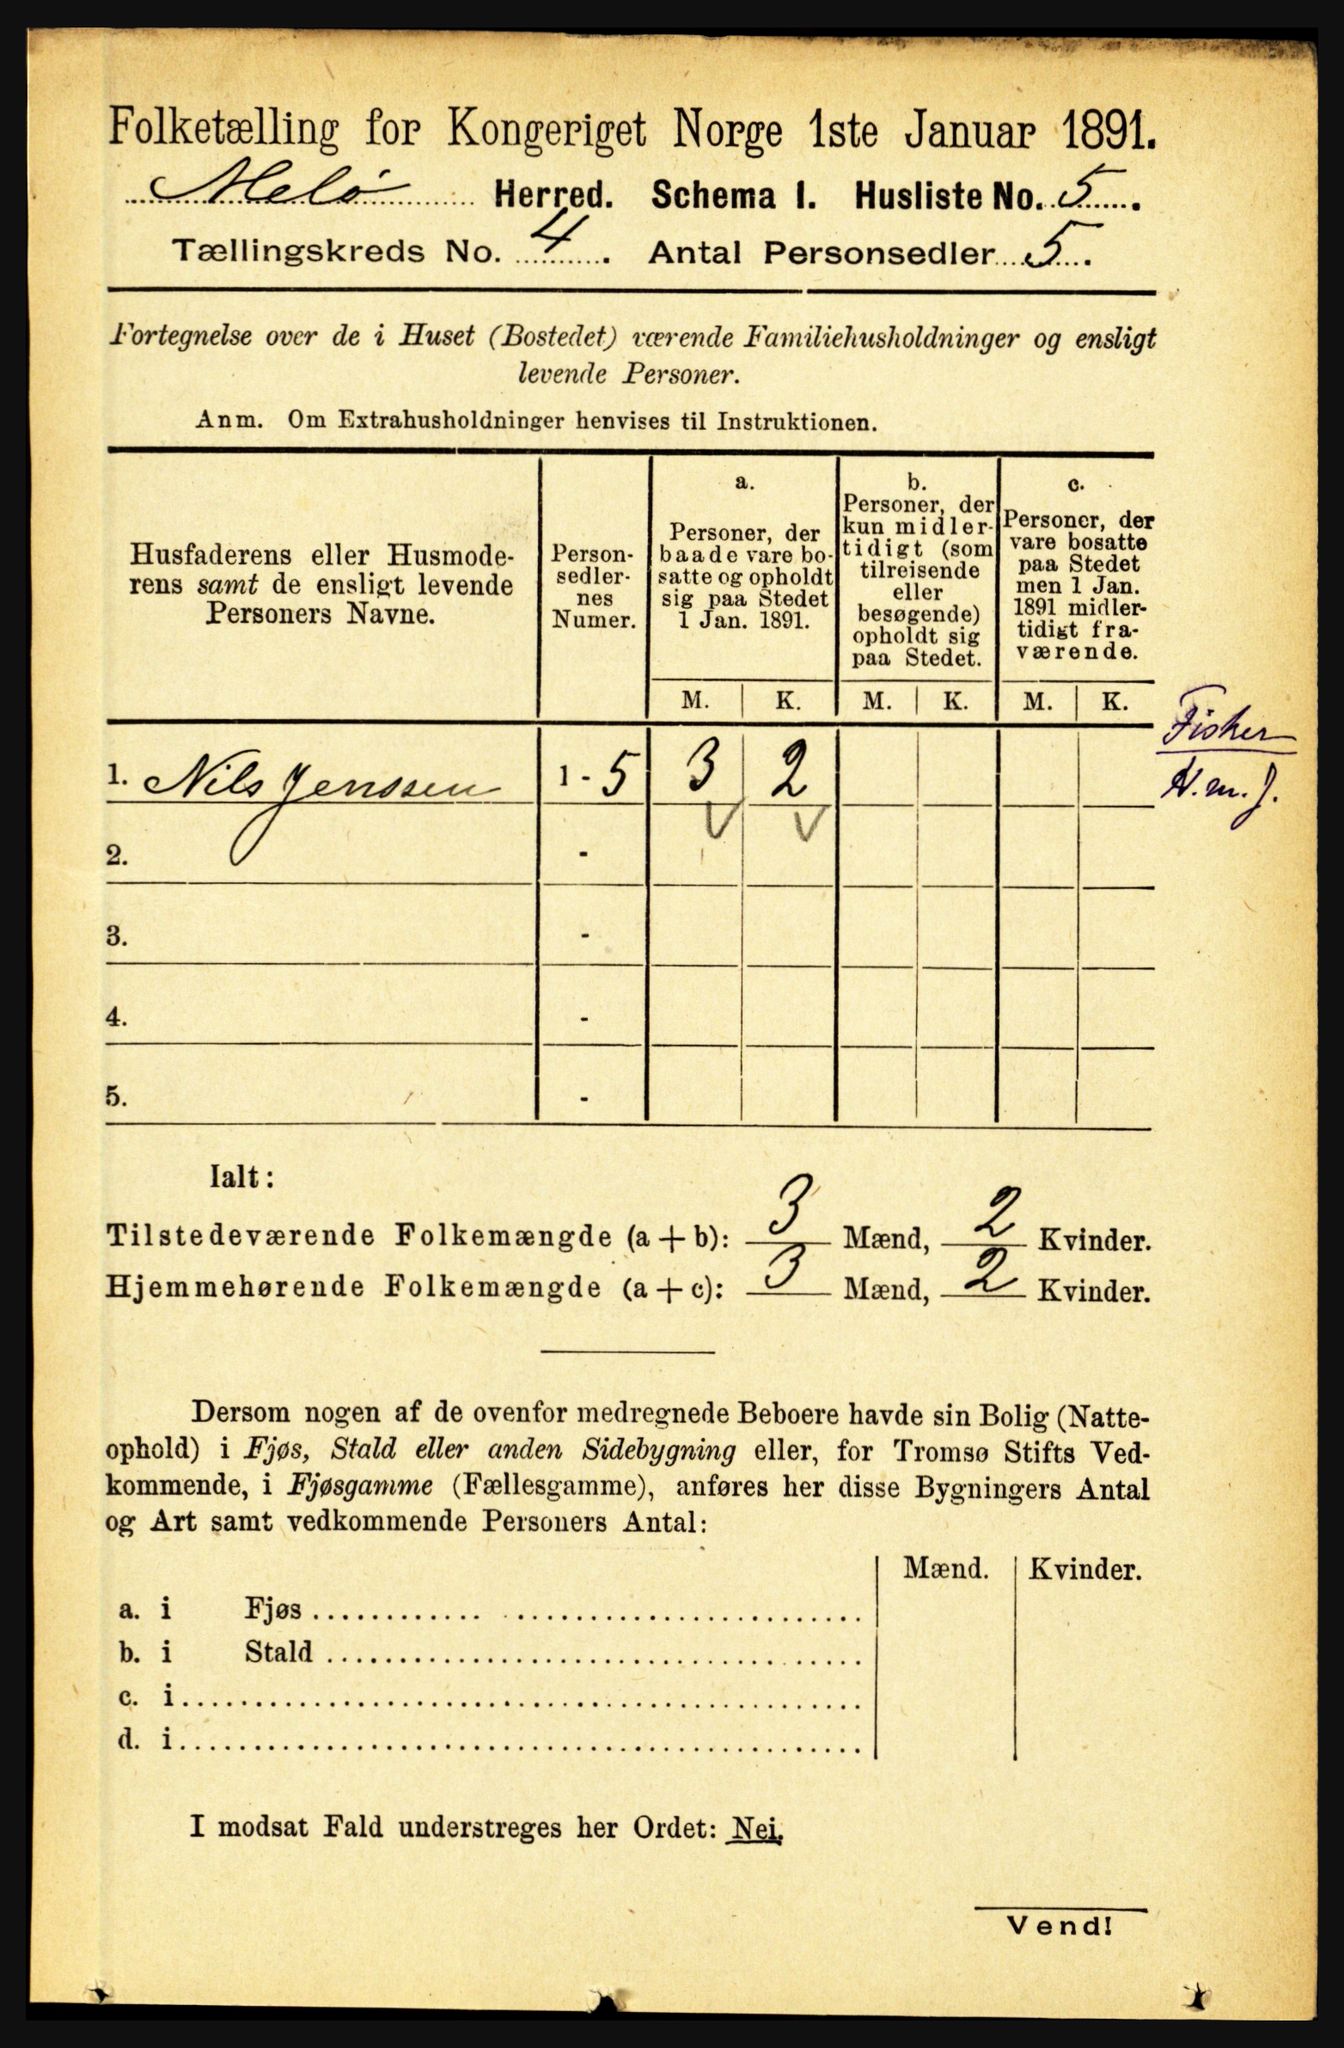 Folketælling for Kongeriget Norge 1ste Januar 1891.
Melø Herred. Schema I. Husliste No. 5.
Tællingskreds No. 4. Antal Personsedler 5.
Fortegnelse over de i Huset (Bostedet) værende Familiehusholdninger og ensligt
levende Personer.
Anm. Om Extrahusholdninger henvises til Instruktionen.
Husfaderens eller Husmode-
rens samt de ensligt levende
Personers Navne.
Person-
sedler-
nes
Numer.
a.
Personer, der
baade vare bo-
satte og opholdt
sig paa Stedet
1 Jan. 1891.
b.
Personer, der
kun midler-
tidigt (som
tilreisende
eller
besøgende)
opholdt sig
paa Stedet.
c.
Personer, der
vare bosatte
paa Stedet
men 1 Jan.
1891 midler-
tidigt fra-
værende.
M. K. M. K. M. K.
Fisker
1. Nils Jenssen 1 - 5 3 2
N. m. J.
2. -
3. -
4. -
5. -
Ialt:
Tilstedeværende Folkemængde (a + b): 3 Mænd, 2 Kvinder.
Hjemmehørende Folkemængde (a + c): 3 Mænd, 2 Kvinder.
Dersom nogen af de ovenfor medregnede Beboere havde sin Bolig (Natte-
ophold) i Fjøs, Stald eller anden Sidebygning eller, for Tromsø Stifts Ved-
kommende, i Fjøsgamme (Fællesgamme), anføres her disse Bygningers Antal
og Art samt vedkommende Personers Antal:
Mænd. Kvinder.
a. i Fjøs
b. i Stald
c. i
d. i
I modsat Fald understreges her Ordet: Nei.
Vend!